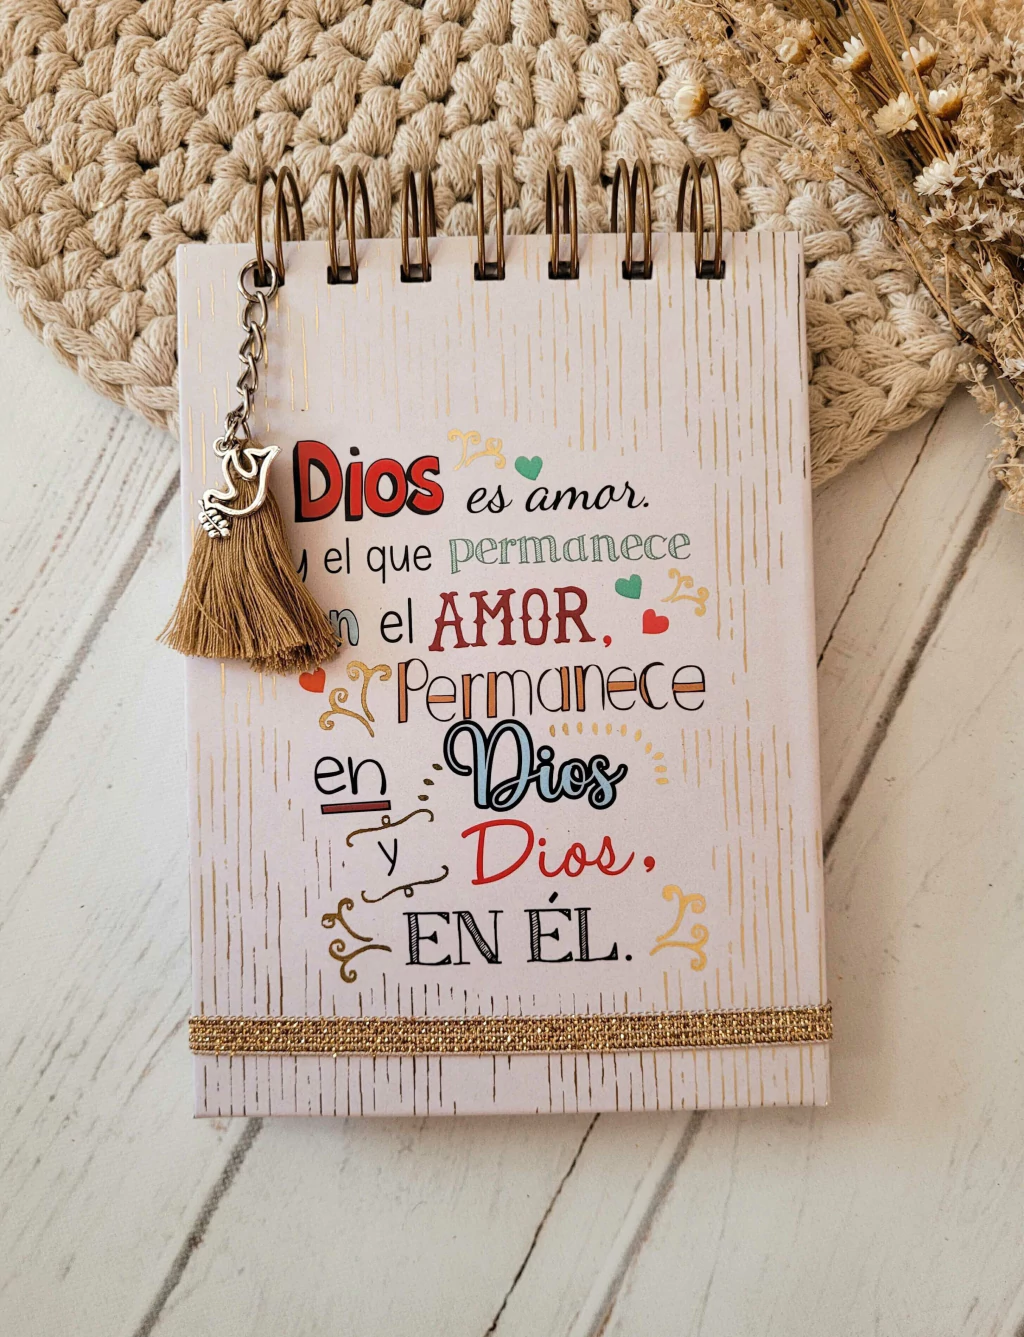 Dios es amor.
y el que permanece
en el AMOR,
Permanece
en Dios
y Dios,
EN ÉL.